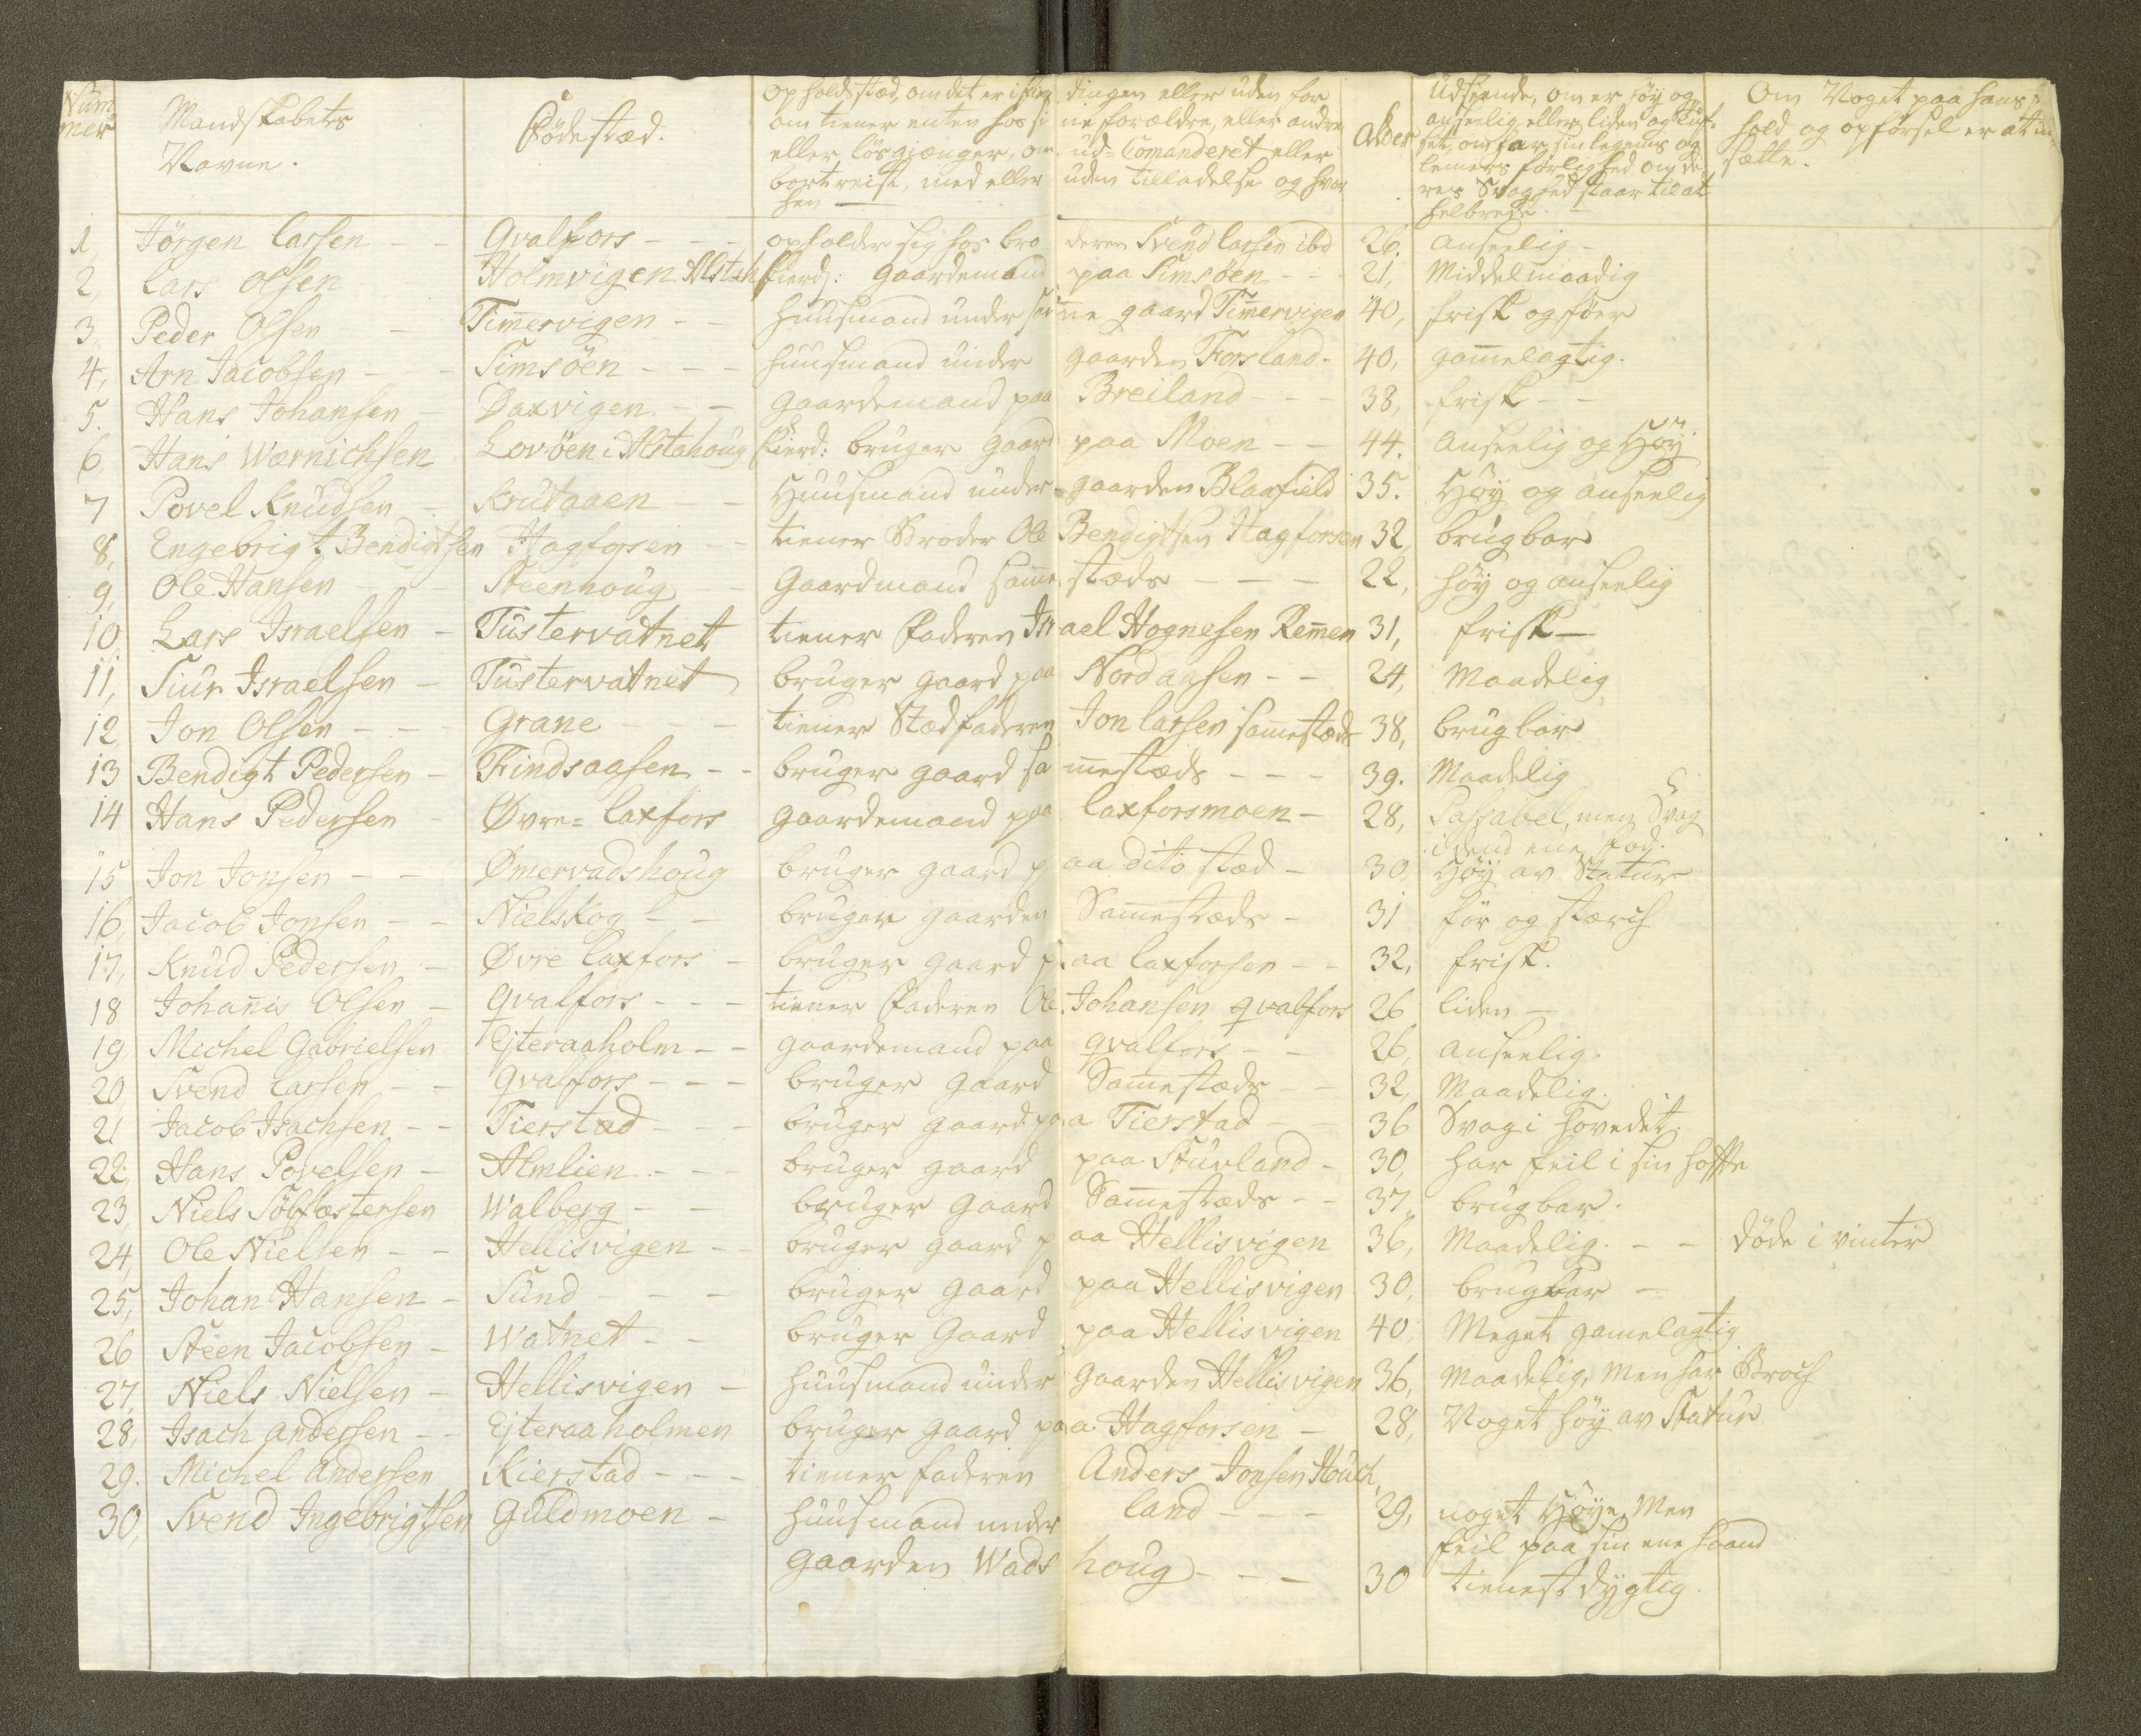 Num
mer
Mandskabets
Navne.
Födestæd.
opholdsstæd, om det er i fier dingen eller uden for
om tiener enten hos si ne forældre, eller andre
eller lösgjænger, om ud= Comanderet eller
bortreist, med eller uden tilladelse og hvor
hen
Alder
Udseende, om er höy og
anseelig eller liden og
om har sin legems og
lemers förlighed om de
res Svaghed staar til at
helbrede.
Om Noget paa hans for
hold og opförsel er at ud
sætte.
1, Jörgen Larsen - - Qvalfors - - - opholder sig hos bro deren Svend Larsen ibd 26. anseelig -
2, Lars Olsen Holmvigen Alstah fierd: gaardemand paa Simsöen - - 21, Middelmaadig
3, Peder Olsen - Tim̄ervigen - - huusmand under sam̄e gaard Tim̄ervigen 40, frisk og föer
4, Arn Jacobsen - - - Simsöen - - - huusmand under gaarden Forsland - 40, gam̄elagtig.
5. Hans Johansen - Daxvigen - - gaardemand paa Breiland - - - 38, frisk - -
6, Hans Wærnichsen Lovöen i Alstahoug fierd: bruger gaard paa Moen - - 44. anseelig og Höy
7 Povel Knudsen - Krutaaen - Huusmand under gaarden Blaafield 35. Höy og anseelig
8, Engebrigt Bendigtsen Hagforsen - - tiener Broder Ole Bendigtsen Hagforsen 32, brugbar
9, Ole Hansen - - Steenhoug - - Gaardmand sam̄e stæds - - - 22, höy og anseelig
10 Lars Israelsen - Tustervatnet tiener Faderen Israel Hognesen Rem̄en 31, frisk -
11, Siur Israelsen - Tustervatnet bruger gaard paa Nordaasen - - 24, Maadelig
12 Jon Olsen - - - Grane - - - tiener Stedfaderen Jon Larsen sam̄estæds 38, brugbar
13 Bendigt Pedersen - Findsaasen - - bruger gaard sam̄estæds - - - 39. Maadelig
14 Hans Pedersen - Øvre= Laxfors gaardemand paa Laxforsmoen - 28, Passabel, men Svag
i vend ene fod.
15 Jon Jonsen - - Ømervadshoug bruger gaard paa dito stæd - 30, Höy av Statur
16, Jacob Jonsen - - Nielskog - - bruger gaarden Sam̄estæds - 31 för og stærch
17, Knud Pedersen - Øvre Laxfors - bruger gaard paa Laxforsen - - 32, frisk.
18 Johan̄is Olsen - Qvalfors - - - tiener Faderen Ole Johansen Qvalfors 26 liden -
19 Michel Gabrielsen Ejteraaholm - - gaardemand paa Qvalfors - - 26, anseelig.
20 Svend Larsen - - Qvalfors - - - bruger gaard Sam̄estæds - - 32, Maadelig.
21 Jacob Isachsen - - Tierstad - - - bruger gaard paa Tierstad - - 36 Svag i hovedet.
22, Hans Povelsen - Almlien - - - bruger gaard paa Stuvland - 30, har feil i sin hofte
23, Niels Söbfæstersen Walberg - - bruger gaard Sam̄estæds - - 37, brugbar.
24, Ole Nielsen - - Hellisvigen - - bruger gaard paa Hellisvigen 36, Maadelig. - - döde i vinter
25, Johan Hansen - Sund - - - bruger gaard paa Hellisvigen 30, brugbar -
26 Steen Jacobsen - Watnet - - bruger Gaard paa Hellisvigen 40, Meget gamelagtig
27, Niels Nielsen - Hellisvigen - huusmand under gaarden Hellisvigen 36, Maadelig, men har Broch
28, Isach Andersen - - Ejteraaholmen bruger gaard paa Hagforsen - 28, Noget höy av Statur
29. Michel Andersen Kierstad - - - tiener faderen Anders Jonsen Houch
land - - - 29, noget Höye, Men
feil paa sin ene haand
30, Svend Ingebrigtsen Guldmoen - huusmand under
gaarden Wads houg - - - 30 tienestdygtig.